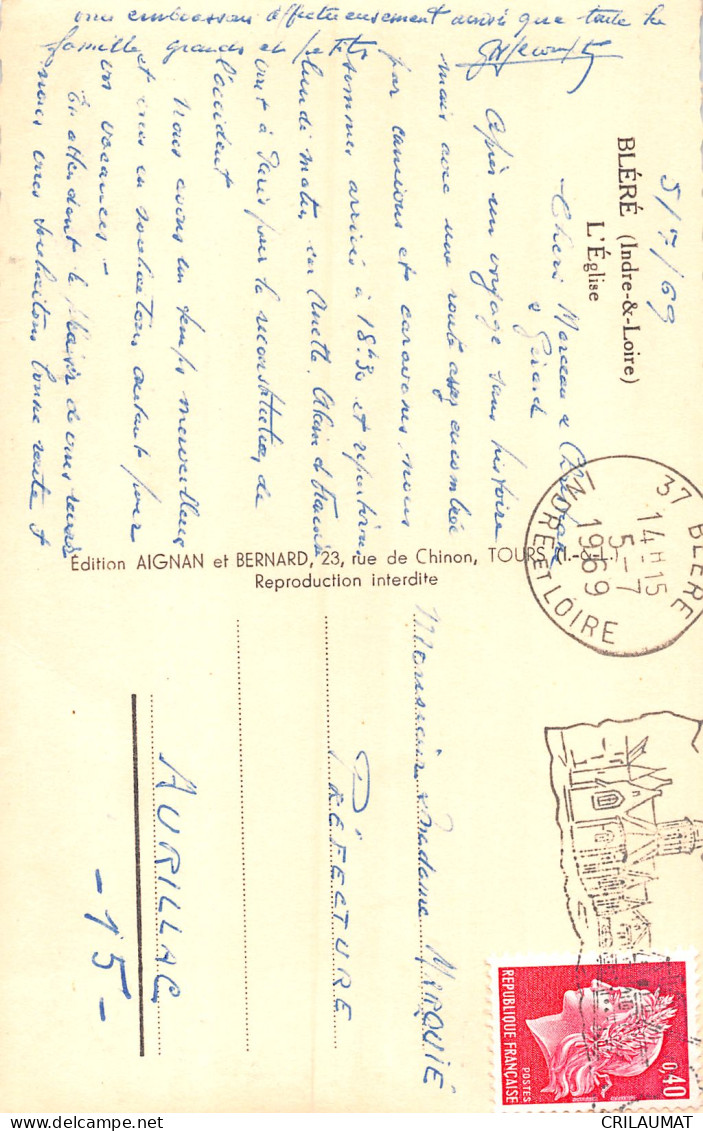 BLÉRÉ (Indre-&-Loire)
L'Église
5/7/69
Après un voyage sans histoire
mais avec une route assez encombrée
par camions et caravanes, nous
sommes arrivés à 18h30 et repartirons
lundi matin, car
vont à Paris pour la reconstitution de
l'accident
Nous avons un temps merveilleux
et
vos vacances -
En attendant le plaisir de vous revoir
nous vous souhaitons bonne route &
vous embrassons affectueusement ainsi que toute la
famille grands et petits
Édition AIGNAN et BERNARD, 23, rue de Chinon, TOURS (I.-&-L.)
Reproduction interdite
37 BLERE
14H15
5-7
1969
INDRE ET LOIRE
Monsieur & Madame MARQUIÉ
PRÉFECTURE
AURILLAC
-15-
RÉPUBLIQUE FRANÇAISE
POSTES
0,40
delcampe.net
CRILAUMAT